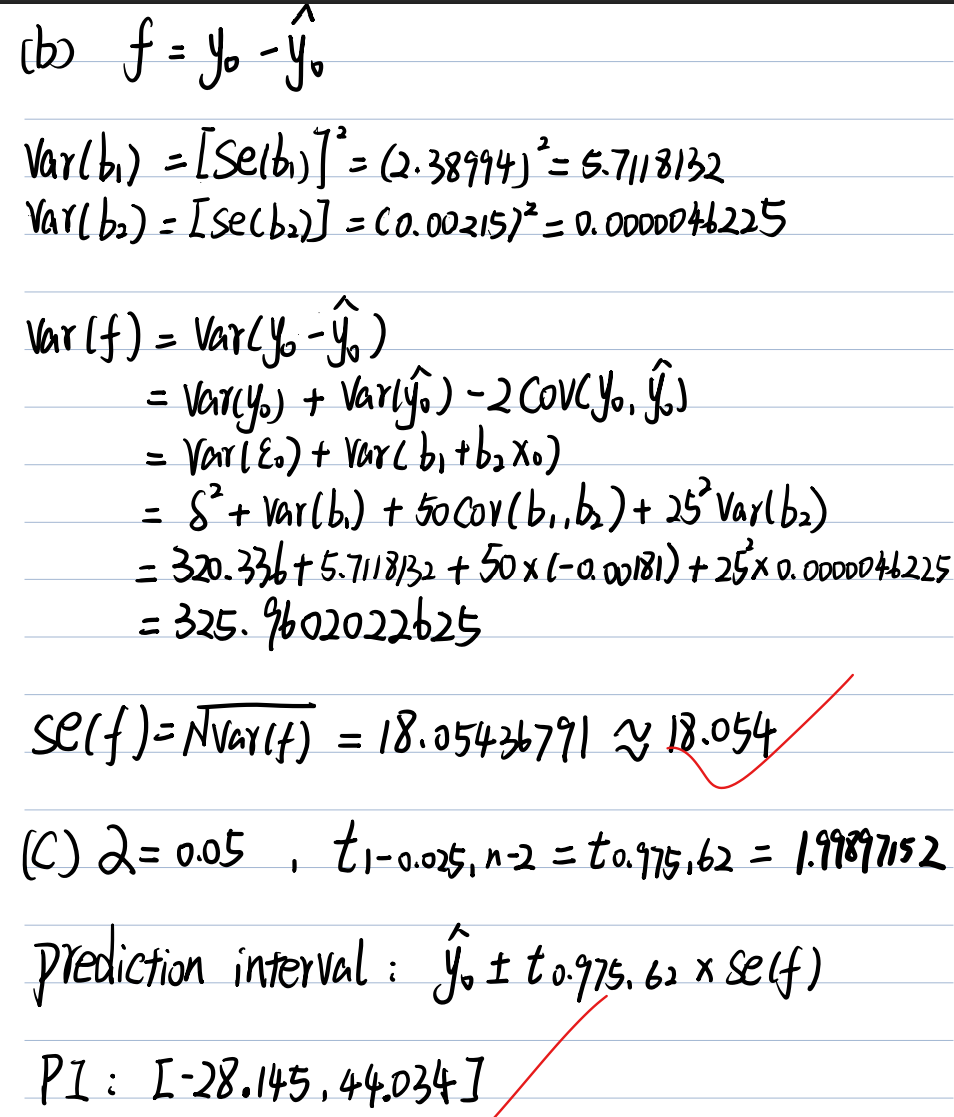 (b) f = y₀ - ŷ₀
Var(b₁) = [Se(b₁)]² = (2.38994)² = 5.7118132
Var(b₂) = [se(b₂)] = (0.00215)² = 0.0000046225
Var(f) = Var(y₀ - ŷ₀)
= Var(y₀) + Var(ŷ₀) - 2 Cov(y₀, ŷ₀)
= Var(ε₀) + Var(b₁ + b₂x₀)
= δ² + Var(b₁) + 50 Cov(b₁, b₂) + 25² Var(b₂)
= 320.336 + 5.7118132 + 50 × (-0.00181) + 25² × 0.0000046225
= 325.9602022625
se(f) = √Var(f) = 18.05436791 ≈ 18.054
(C) α = 0.05 , t₁₋₀.₀₂₅, ₙ₋₂ = t₀.₉₇₅, ₆₂ = 1.99897152
prediction interval : ŷ₀ ± t₀.₉₇₅, ₆₂ × se(f)
PI : [-28.145, 44.034]